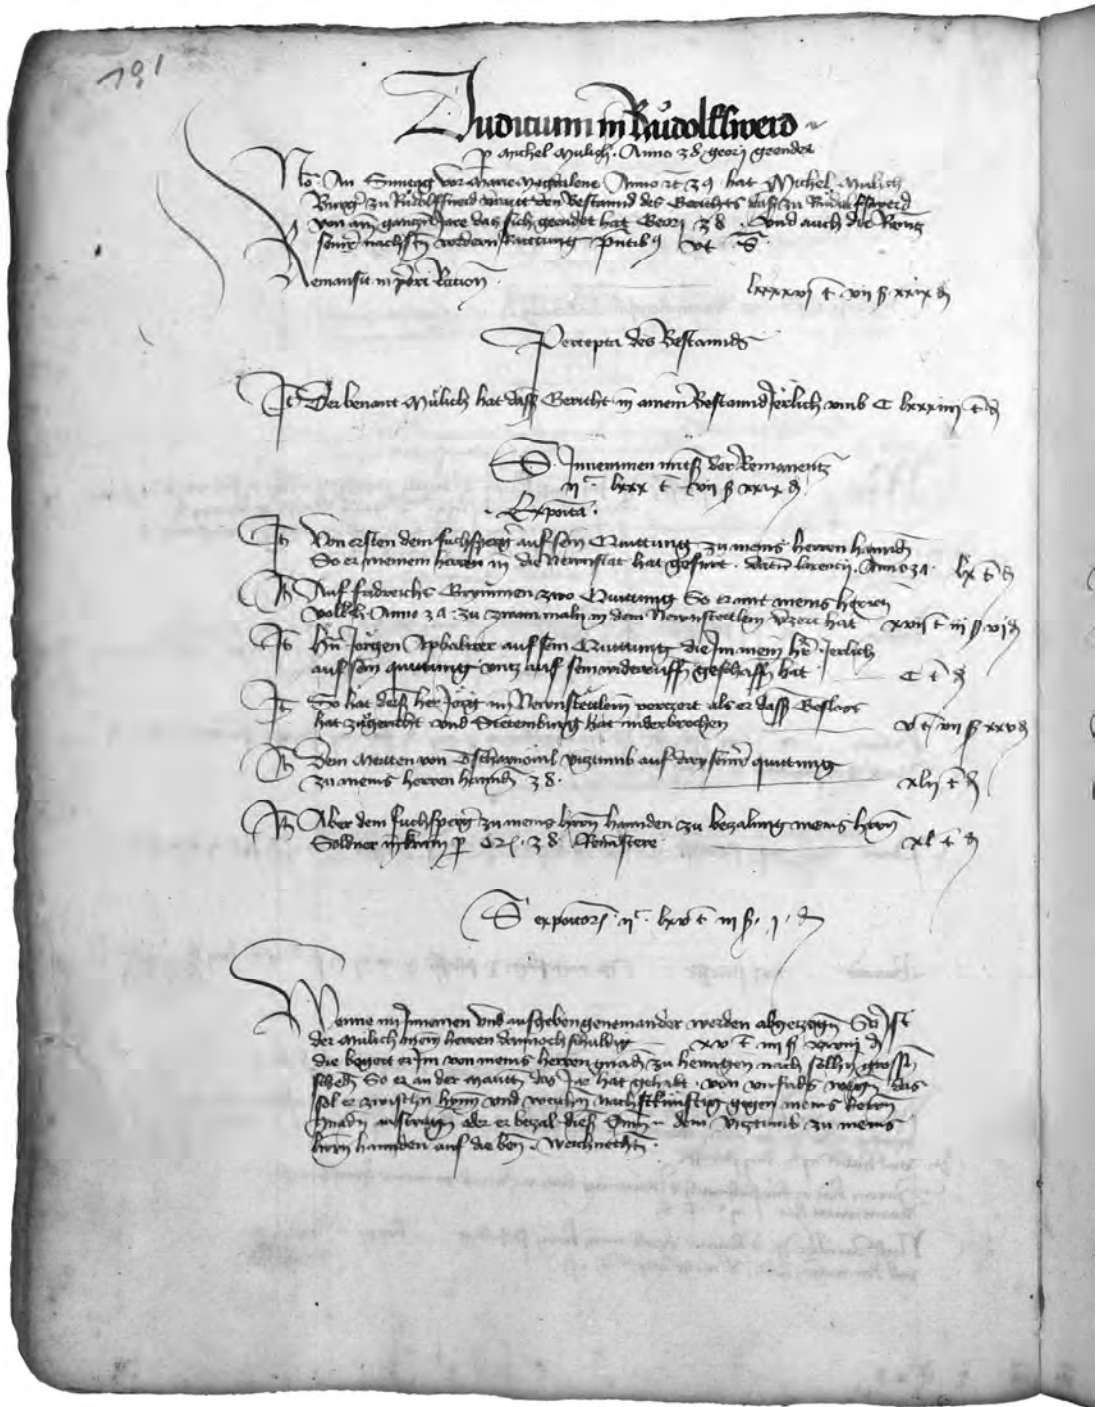 191
Judicium in Rudolfswerd
p Michel Mulich. Anno 38 georij geendet
No. An Sunntag vor Marie Magdalene Anno etc 39 hat Michel Mulich
Burger zu Rudolfswerd den Bestannd des Gerichts daselbs zu Rudolfswerd
von aim ganczen Jare das sich geendet hat Georij 38. Und auch die Remanencz
seiner nachsten vordern Raittung vt S
Remansit in priori Racion
lxxxxvj t vij ß xxix d
Percepta des Bestannds
It Der benant Mulich hat dass Gericht in ainem Bestannd Jerlich umb C lxxxiiij t d
S. Innemmen mitsß der Remanentz
ij C lxxx t vij ß xxix d
Exposita.
It Von ersten dem fuchsperger auf sein Quittung zu meins herren hannden
So er meinem herren in die Newnstat hat gefurt. datum laurencij. Anno 34. lx t d
It Auf fridreichs Grymmen zwo Quittung So er mit meins herren
volkch Anno 34. zu zwain maln in dem Newnstettlein verzert hat xvij t iij ß vj d
It Hern Jorgen Apholtrer auf sein Quittung die Im mein her Jerlich
auf sein quittung vntz auf sein widerruffen geschafft hat C t d
It So hat derselb her Jorg im Newnstettlein verczert als er dass Gesloss
hat zugericht vnd Stettenburg hat niderbrochen v t vij ß xxv d
It Dem Mertten von Tschernoml viztumb auf drey seiner quittung
zu meins herren hannden 38. xlij t d
It Aber dem fuchsperger zu meins herren hannden zu bezalung meins herren
Soldner 38 xl t d
S expositorum ij C. lxv t iij ß. j. d
Wenne nu Innemen vnd aufgeben geneinander werden abgeczogen So Ist
der Mulich mein herren dannoch schuldig xv t iiij ß xxviij d
die begert er Im von meins herren gnaden zu hennigen nach sollhen grossen
scheden So er an der Mautt das Jar hat gehabt. von vnfrids wegen das
sol er zwischen hynn vnd weihen nachstkunftig gegen meins herren
gnaden austragen oder er bezal diese Summ dem Viztumb zu meins
herren hannden auf die ben. Weichnachten.